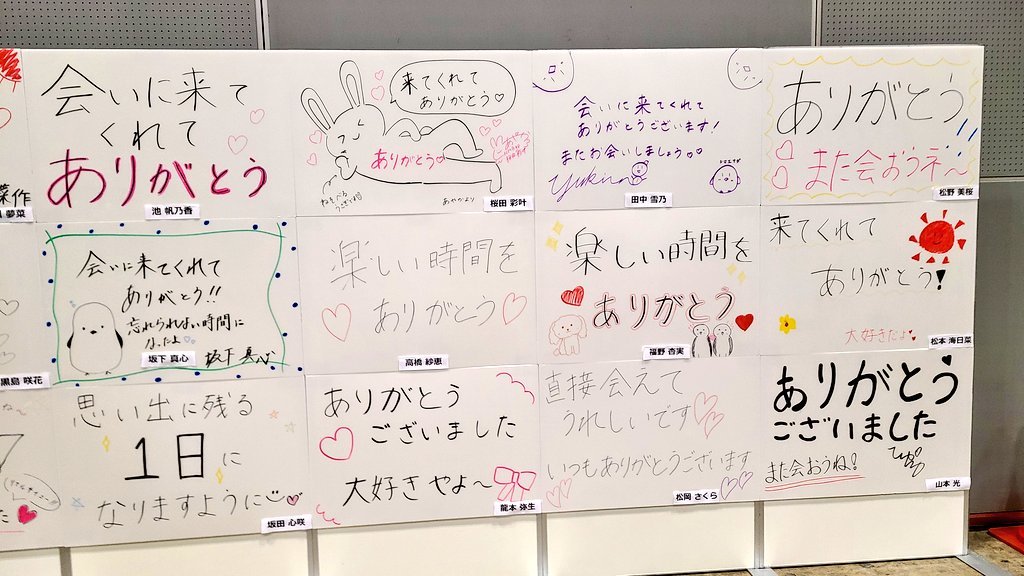 会いに来て
くれて
ありがとう
池 帆乃香
来てくれて
ありがとう♡
ありがとう♡
あやかより
桜田 彩叶
会いに来てくれて
ありがとうございます!
またお会いしましょう
田中 雪乃
ありがとう
また会おうネ〜
松野 美桜
夢菜
会いに来てくれて
ありがとう!!
忘れられない時間に
なったよ
坂下 真心
坂下 真心
楽しい時間を
ありがとう
高橋 紗恵
楽しい時間を
ありがとう
福野 杏実
来てくれて
ありがとう!
大好きだよ
松本 海日菜
黒島 咲花
思い出に残る
1日に
なりますように
坂田 心咲
ありがとう
ございました
大好きやよ〜
龍本 弥生
直接会えて
うれしいです
いつもありがとうございます
松岡 さくら
ありがとう
ございました
また会おうね!
山本 光